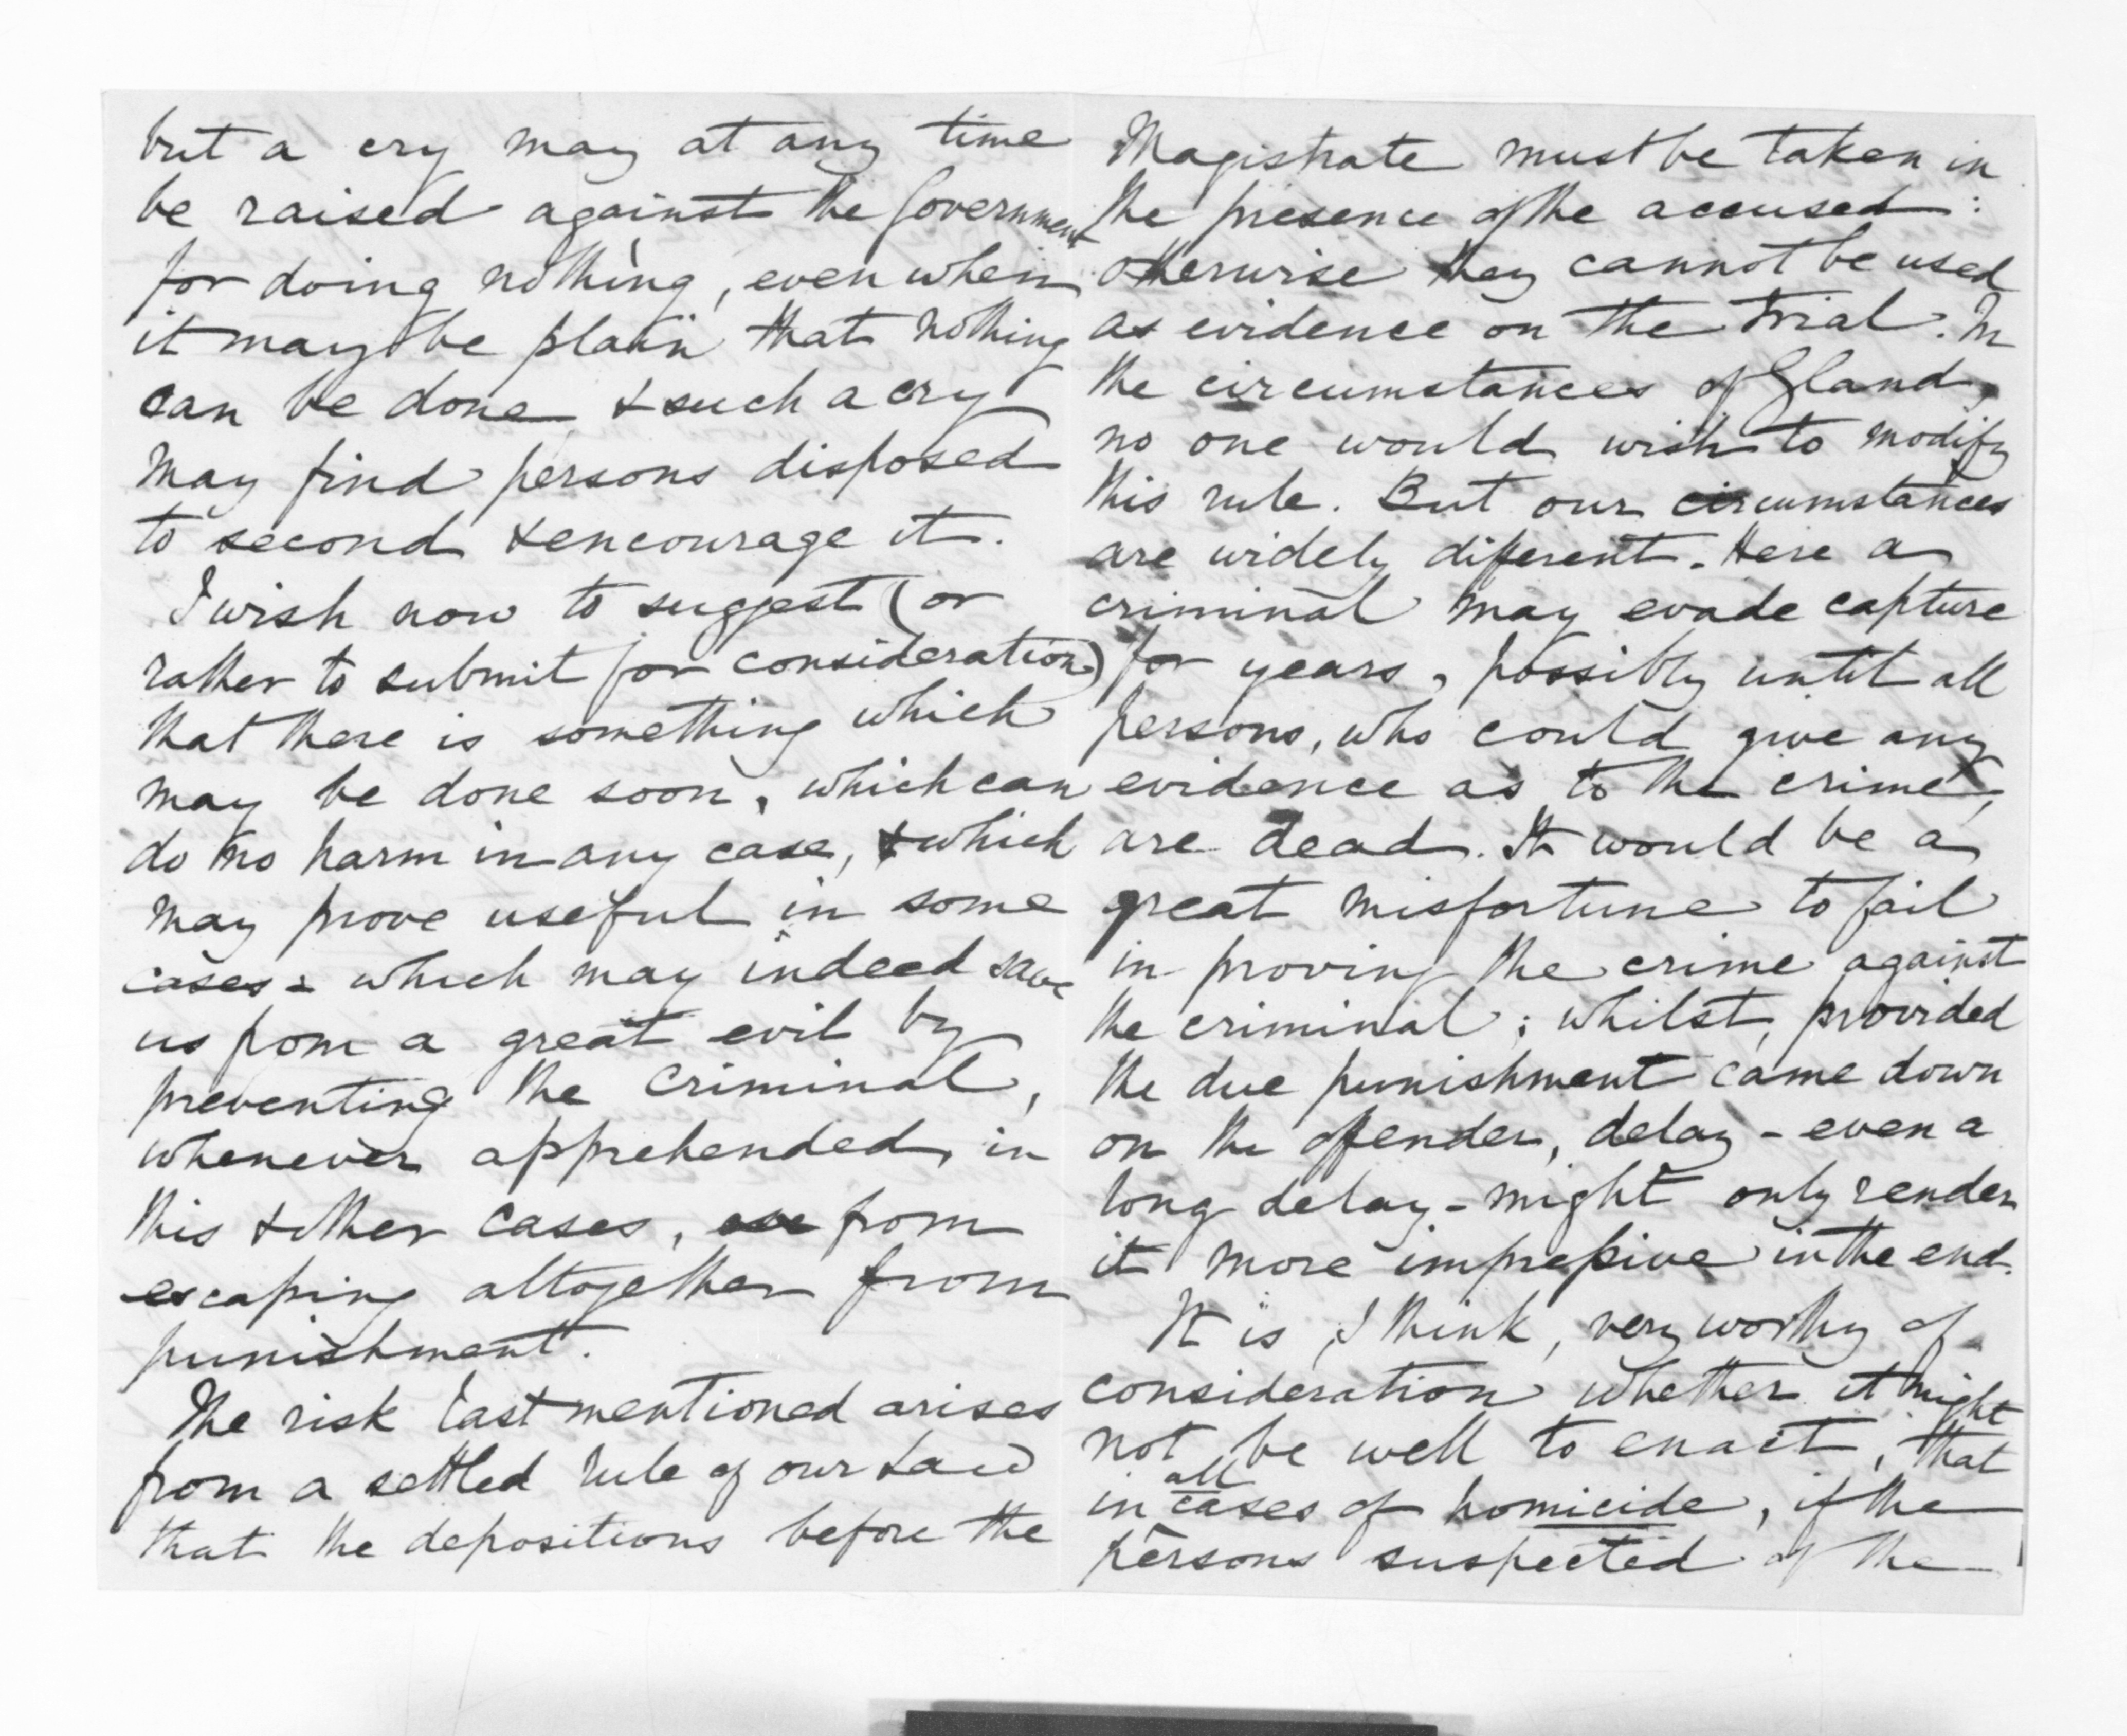 but a cry may at any time
be raised against the Government
for doing nothing, even when
it may be plain that nothing
can be done & such a cry
may find persons disposed
to second & encourage it.
I wish now to suggest (or
rather to submit for consideration)
that there is something which
may be done soon, which can
do no harm in any case, & which
may prove useful in some
cases: which may indeed save
us from a great evil by
preventing the criminal,
whenever apprehended, in
this & other cases, from
escaping altogether from
punishment.
The risk last mentioned arises
from a settled rule of our Law
that the depositions before the
Magistrate must be taken in
the presence of the accused:
otherwise they cannot be used
as evidence on the trial. In
the circumstances of Eland,
no one would wish to modify
this rule. But our circumstances
are widely different. Here a
criminal may evade capture
for years, possibly until all
persons, who could give any
evidence as to the crime,
are dead. It would be a
great misfortune to fail
in proving the crime against
the criminal; whilst, provided
the due punishment came down
on the offender, delay - even a
long delay - might only render
it more impressive in the end.
It is, I think, very worthy of
consideration whether it might
not be well to enact, that
in all cases of homicide, if the
persons suspected of the